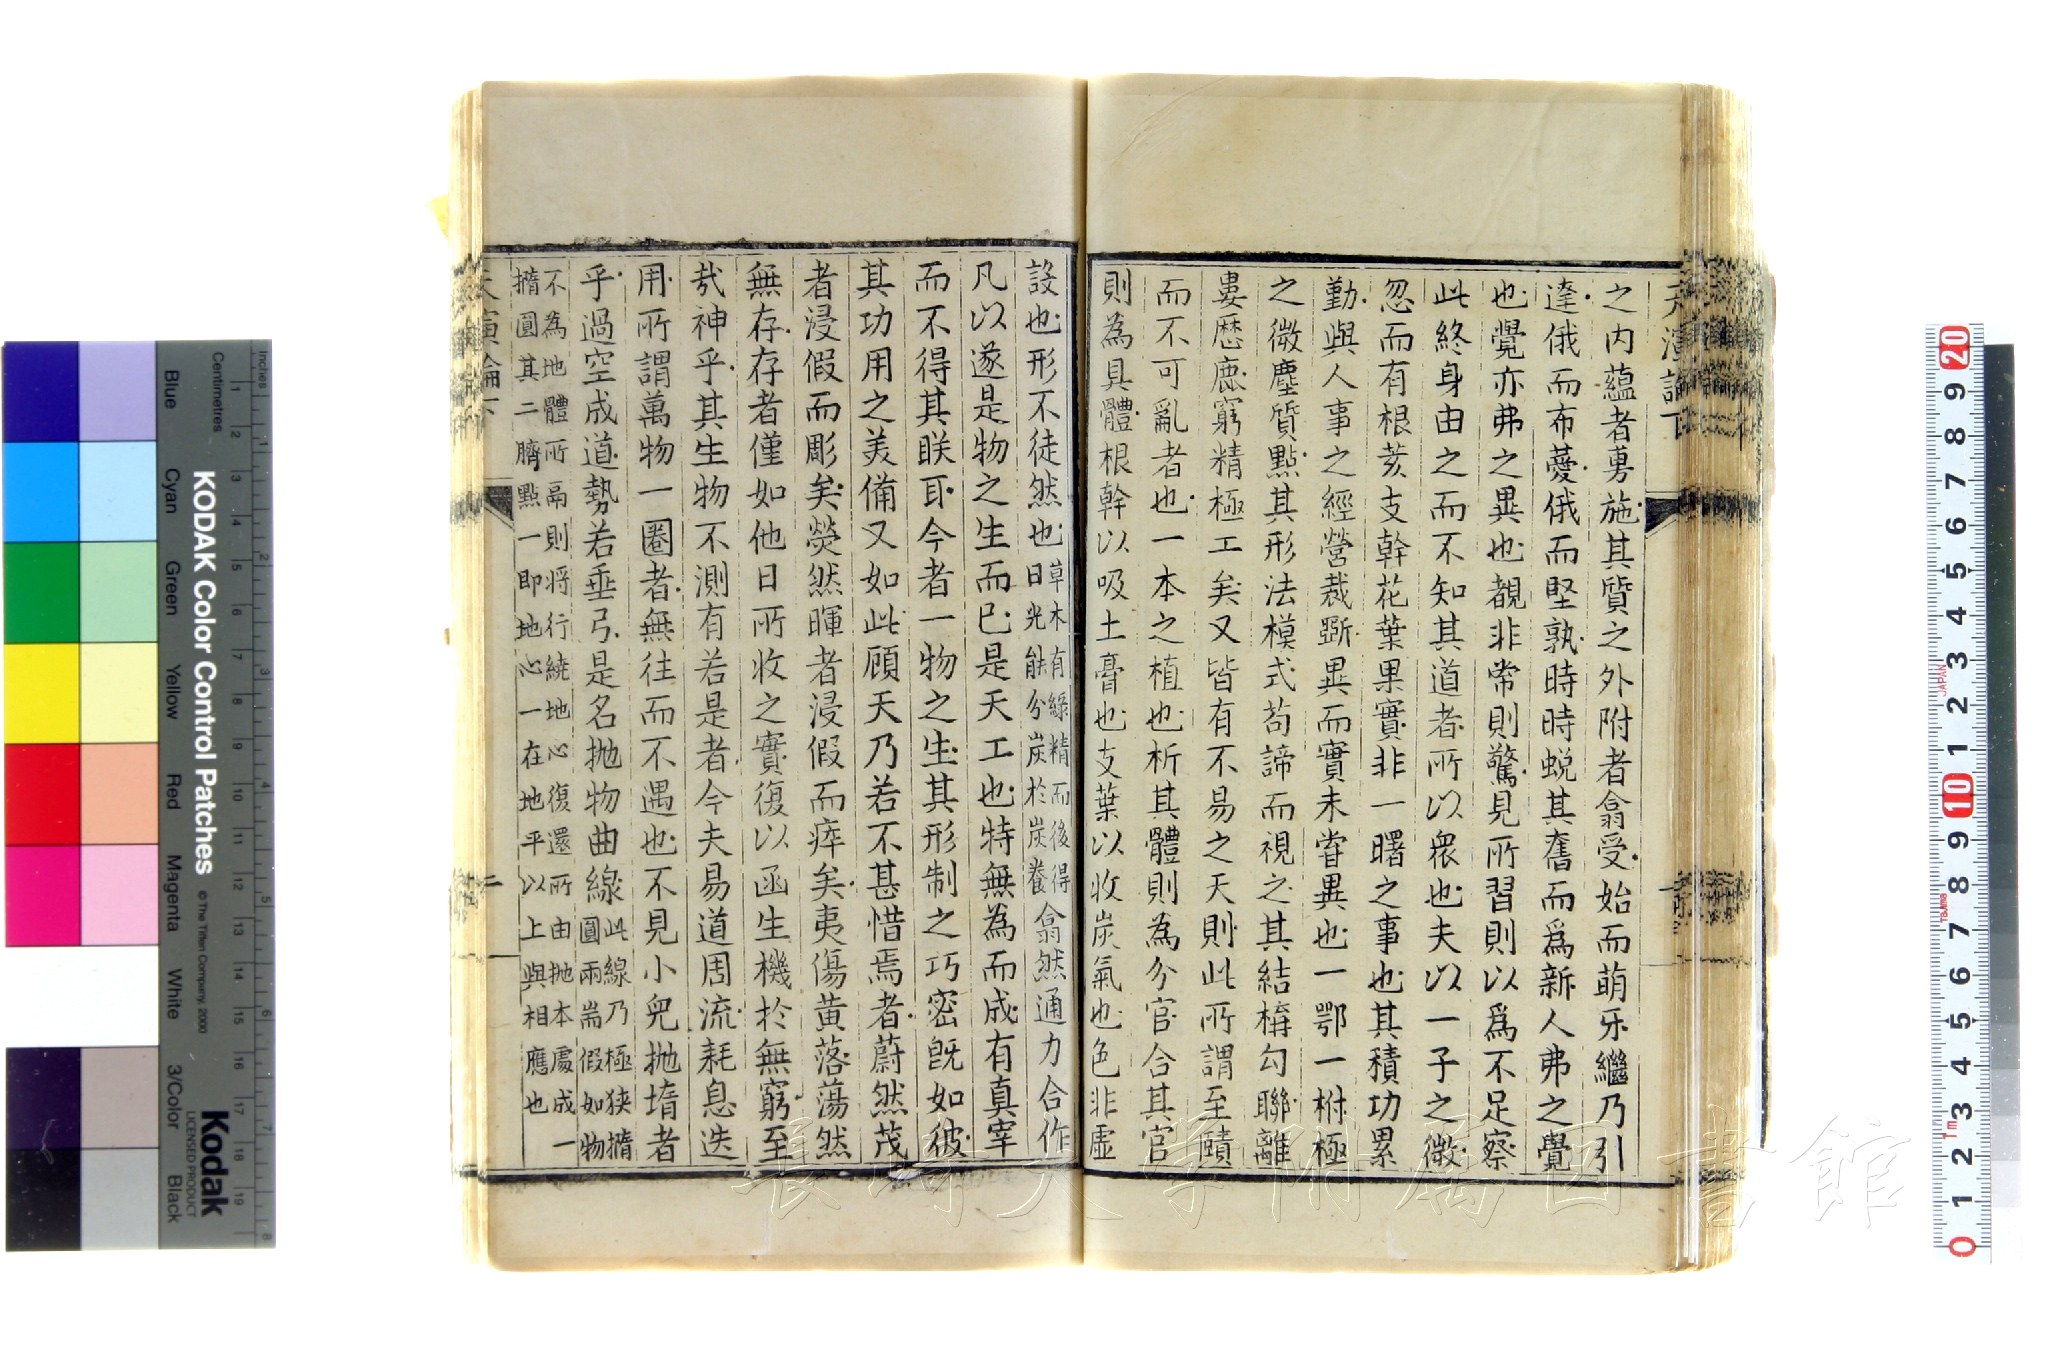 天演論下
之内蘊者勇施其質之外附者翕受始而萌牙繼乃引
達俄而布薆俄而堅孰時時蛻其舊而爲新人弗之覺
也覺亦弗之異也覩非常則驚見所習則以爲不足察
此終身由之而不知其道者所以衆也夫以一子之微
忽而有根荄支幹花葉果實非一曙之事也其積功累
勤與人事之經營裁斲異而實未嘗異也一鄂一柎極
之微塵質點其形法模式苟諦而視之其結構勾聯離
婁歷鹿窮精極工矣又皆有不易之天則此所謂至賾
而不可亂者也一本之植也析其體則為分官合其官
則為具體根幹以吸土膏也支葉以收炭氣也色非虛
設也形不徒然也草木有綠精而後得日光能分炭於炭養翕然通力合作
凡以遂是物之生而已是天工也特無為而成有真宰
而不得其朕耳今者一物之生其形制之巧密既如彼
其功用之美備又如此顧天乃若不甚惜焉者蔚然茂
者浸假而彫矣熒然暉者浸假而瘁矣夷傷黃落蕩然
無存存者僅如他日所收之實復以函生機於無窮至
哉神乎其生物不測有若是者今夫易道周流耗息迭
用所謂萬物一圈者無往而不遇也不見小兒抛堶者
乎過空成道勢若垂弓是名抛物曲線此線乃極狹撱圓兩耑假如物
不為地體所鬲則將行繞地心復還所由抛本處成一
撱圓其二臍點一即地心一在地平以上與相應也
天演論下
二
KODAK Color Control Patches
© The Tiffen Company, 2000
Kodak
LICENSED PRODUCT
Inches
Centimetres
Blue
Cyan
Green
Yellow
Red
Magenta
White
3/Color
Black
JAPAN
Tajima
1m
長崎大学附属図書館